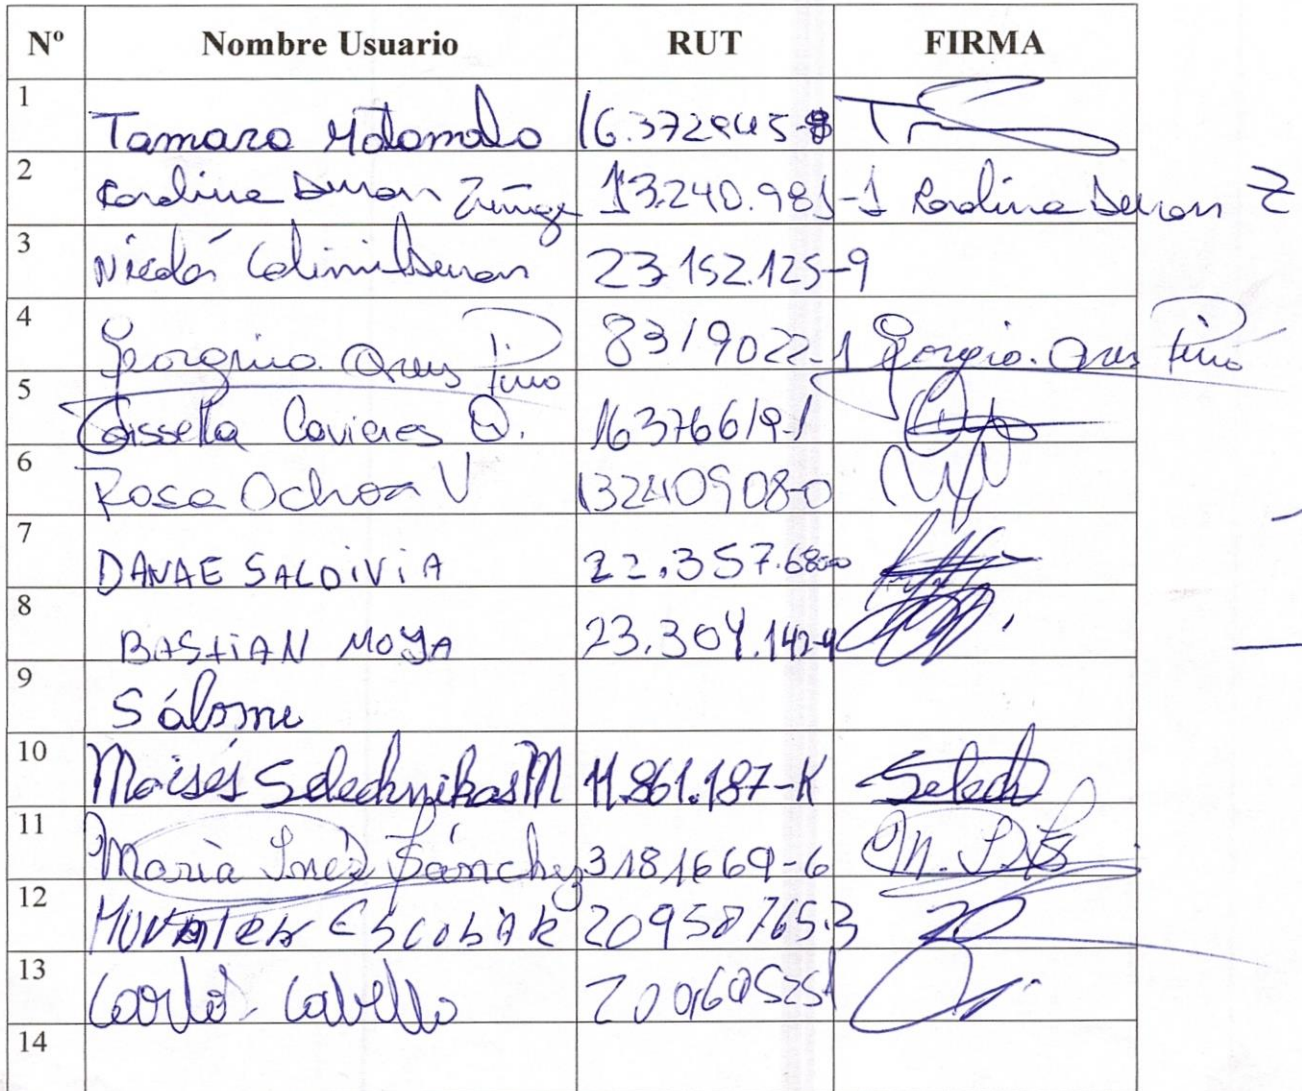 Nº Nombre Usuario RUT FIRMA
1 Tamara
2 Karolina Duran Zuñiga 13.240.981-1 Karolina Duran Z
3 Nicolás Duran 23.152.125-9
4 Georgina Pino 8319022-1 Pino
5 Gissella Cavieres O. 16376619-1
6 Rosa Ochoa V 13240908-0
7 DANAE SALDIVIA 22.357.680-0
8 BASTIAN MOYA 23.304.142-4
9 Sálome
10 Moisés Selechnikas M 11.861.187-K Selech
11 Maria Inés Sánchez 3181669-6
12 ESCOBAR 20958765-3
13 Carlos Cabello
14